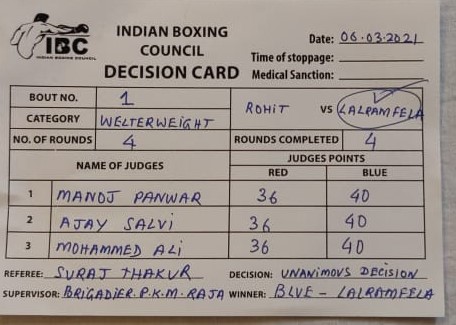 INDIAN BOXING
COUNCIL
DECISION CARD
IBC
INDIAN BOXING COUNCIL
Date: 06.03.2021
Time of stoppage:
Medical Sanction:
BOUT NO. 1
ROHIT VS LALRAMFELA
CATEGORY WELTERWEIGHT
NO. OF ROUNDS 4 ROUNDS COMPLETED 4
NAME OF JUDGES JUDGES POINTS
RED BLUE
1 MANOJ PANWAR 36 40
2 AJAY SALVI 36 40
3 MOHAMMED ALI 36 40
REFEREE: SURAJ THAKUR DECISION: UNANIMOUS DECISION
SUPERVISOR: BRIGADIER.P.K.M.RAJA WINNER: BLUE - LALRAMFELA